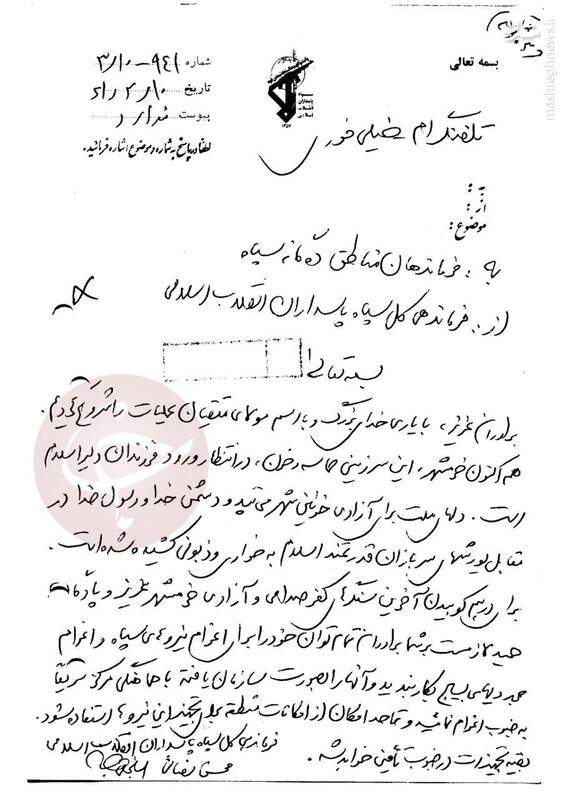 بسمه تعالی
شماره ۹۴۱-۳/۱۰
تاریخ ۶۱/۲/۱۰
پیوست ندارد
لطفا در پاسخ به شماره و موضوع اشاره فرمائید.
تلفنگرام خیلی فوری
به:
از:
موضوع:
به: فرماندهان مناطق دهگانه سپاه
از: فرماندهی کل سپاه پاسداران انقلاب اسلامی
بسمه تعالی
برادران عزیز، با یاری خدای بزرگ و با اسم مولای متقیان عملیات را شروع کردیم.
هم اکنون خرمشهر، این سرزمین حماسه و خون، در انتظار ورود فرزندان دلیر اسلام
است. دلهای ملت برای آزادی خونین شهر می‌تپد و دشمن خدا و رسول خدا در
مقابل یورشهای سربازان قدرتمند اسلام به خواری و ذبونی کشیده شده است.
برای درهم کوبیدن آخرین سنگرهای کفر صدامی و آزادی خرمشهر عزیز و پادگان
حمید لازمست بر شما برادران تمام توان خود را برای اعزام نیروهای سپاه و اعزام
بسیج بکار بندید و آنها را بصورت سازمان یافته با هماهنگی مرکز سریعاً
به جنوب اعزام نمائید و تا حد امکان از امکانات منطقه برای تجهیز این نیروها استفاده شود.
بقیه تجهیزات در جنوب تأمین خواهد شد.
فرماندهی کل سپاه پاسداران انقلاب اسلامی
محسن رضائی
mashreghnews.ir